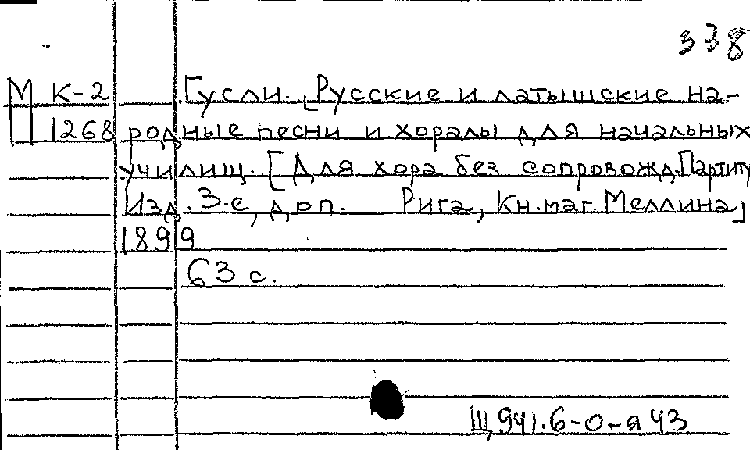 338
М К-2 Гусли. [Русские и латышские на-
П 1268 родные песни и хоралы для начальных
училищ. [Для хора без сопровожд. Партиту
Изд. 3-е, доп. Рига, Кн. маг. Меллина]
1899
63 с.
Щ941.6-0-я43